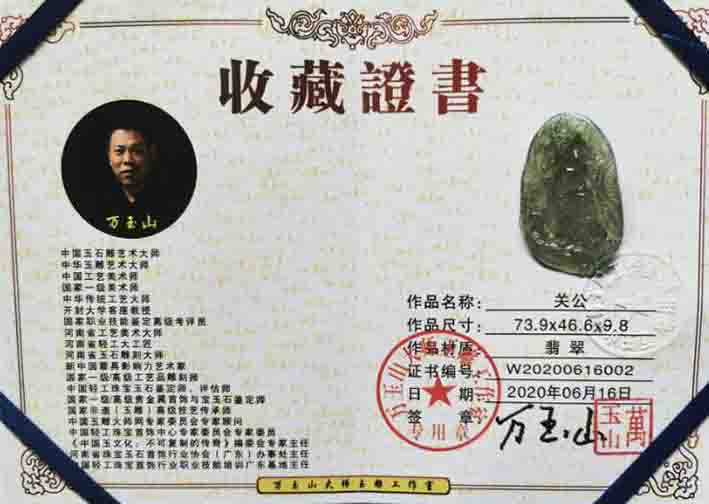 收藏證書
万玉山
中国玉石雕艺术大师
中华玉雕艺术大师
中国工艺美术师
国家一级美术师
中华传统工艺大师
开封大学客座教授
国家职业技能鉴定高级考评员
河南省工艺美术大师
河南省轻工大工匠
河南省玉石雕刻大师
新中国最具影响力艺术家
国家一级/高级工艺品雕刻师
中国轻工珠宝玉石鉴定师、评估师
国家一级/高级贵金属首饰与宝玉石鉴定师
国家非遗（玉雕）高级技艺传承师
中国玉雕大师网专家委员会专家顾问
中国轻工珠宝首饰中心专家委员会专家委员
《中国玉文化，不可复制的传奇》编委会专家主任
河南省珠宝玉石首饰行业协会（广东）办事处主任
国轻工珠宝首饰行业职业技能培训广东基地主任
作品名称： 关公
作品尺寸： 73.9x46.6x9.8
作品材质： 翡翠
证书编号： W20200616002
日 期： 2020年06月16日
签 章： 万玉山
专用章
萬
玉山
万玉山大师玉雕工作室